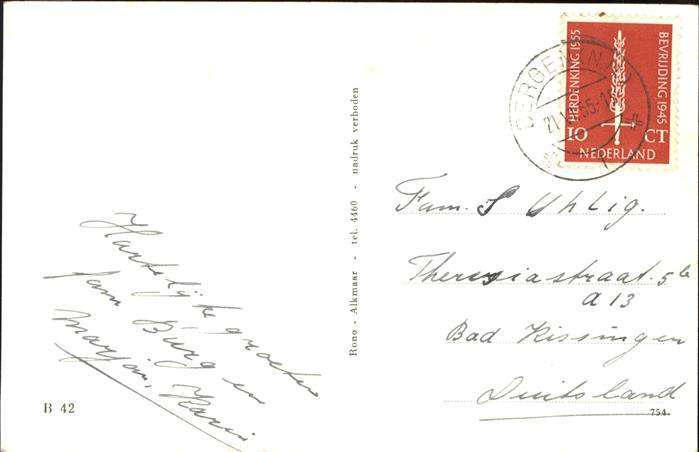 Hartelijke groeten
fam Burg en
Marjan, Karin
B 42
Rono - Alkmaar - tel. 4460 - nadruk verboden
BERGEN
HERDENKING 1955
BEVRIJDING 1945
10 CT
NEDERLAND
Fam. S Uhlig.
Theresiastraat. 5
a 13
Bad Kissingen
Duitsland
754